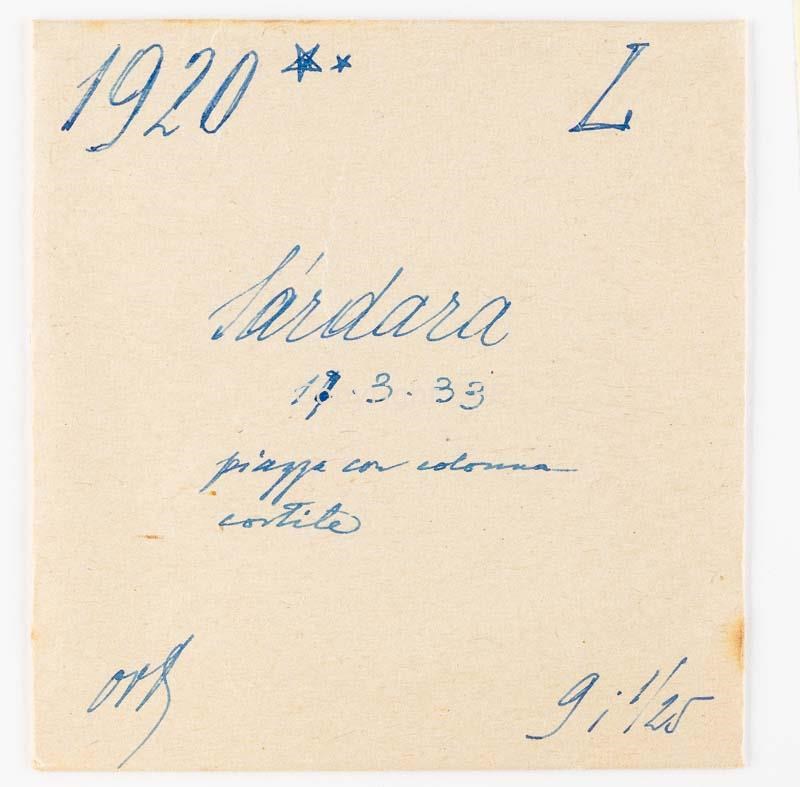 1920 ** L
Sárdara
17.3.33
piazza con colonna
cortile
9 i 1/25